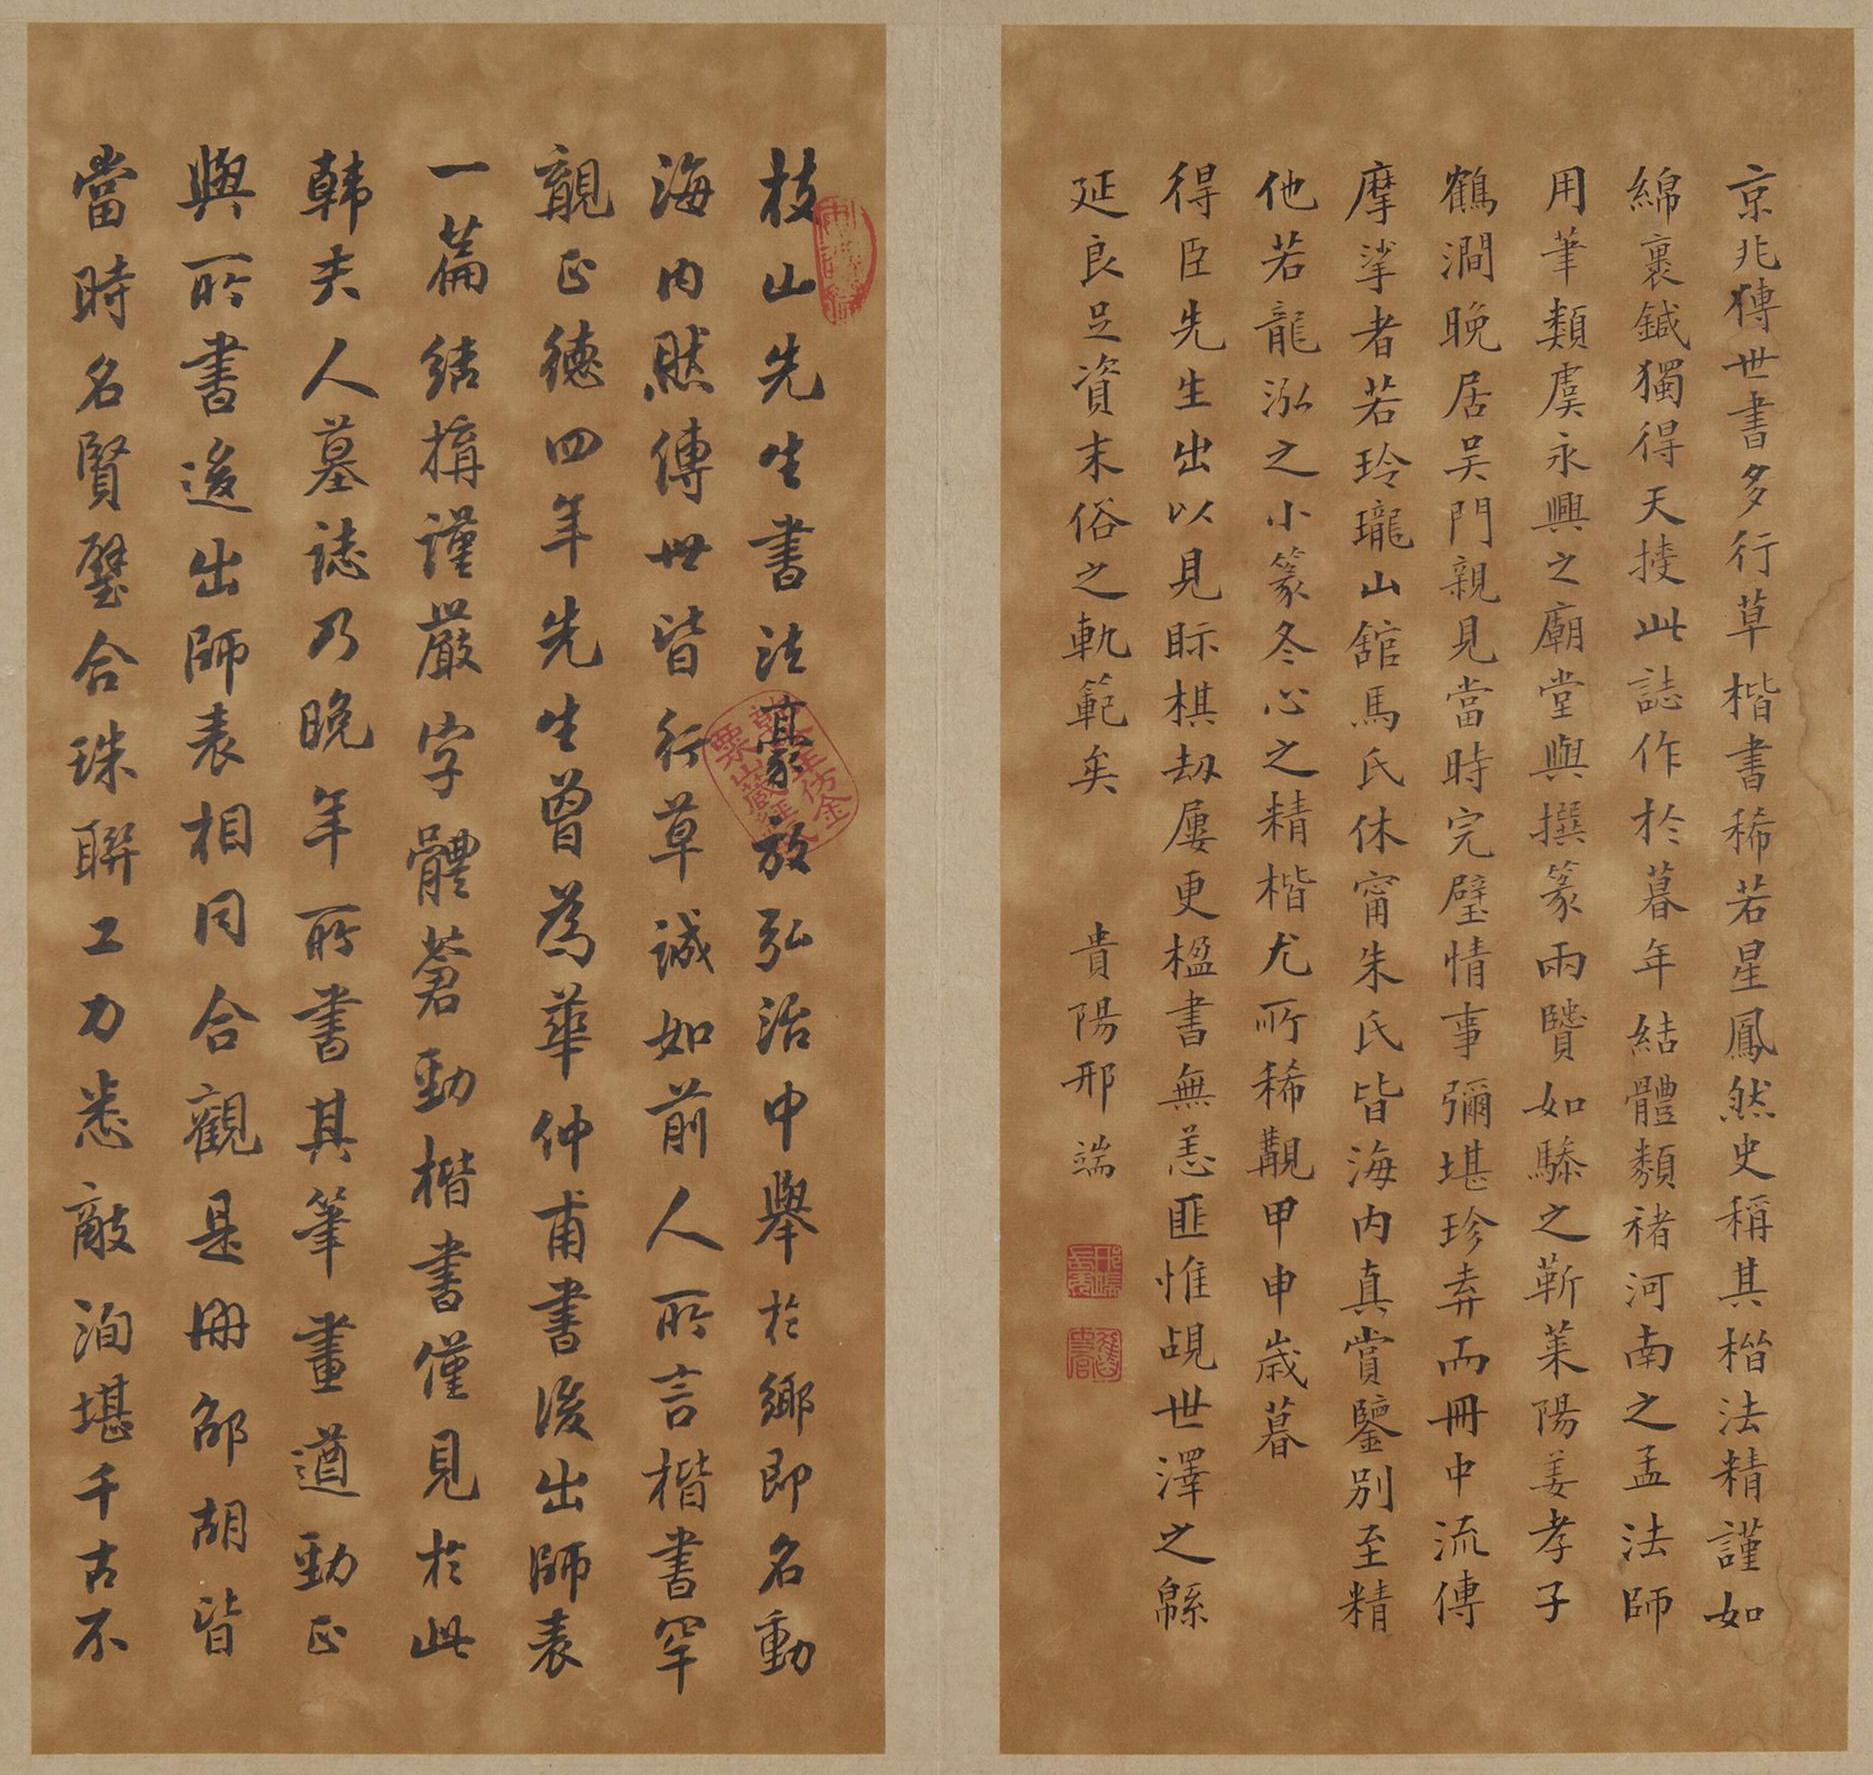 京兆傳世書多行草楷書稀若星鳳然史稱其楷法精謹如
綿裹鍼獨得天㨗此誌作於暮年結體類褚河南之孟法師
用筆類虞永興之廟堂與撰篆兩贒如驂之靳萊陽姜孝子
鶴澗晚居吴門親見當時完璧情事彌堪珍弆而冊中流傳
摩挲者若玲瓏山舘馬氏休甯朱氏皆海内真賞鑒别至精
他若龍泓之小篆冬心之精楷尤所稀覯甲申嵗暮
得臣先生出以見眎棋劫屢更楹書無恙匪惟覘世澤之緜
延良足資末俗之軌範矣 貴陽邢端
枝山先生書法豪放弘治中舉於鄉即名動
海内然傳世皆行草誠如前人所言楷書罕
覯正德四年先生曾為華仲甫書後出師表
一篇結構謹嚴字體蒼勁楷書僅見於此
韩夫人墓誌乃晚年所書其筆畫遒勁正
與所書後出師表相同合觀是冊邵胡皆
當時名賢璧合珠聯工力悉敵洵堪千古不